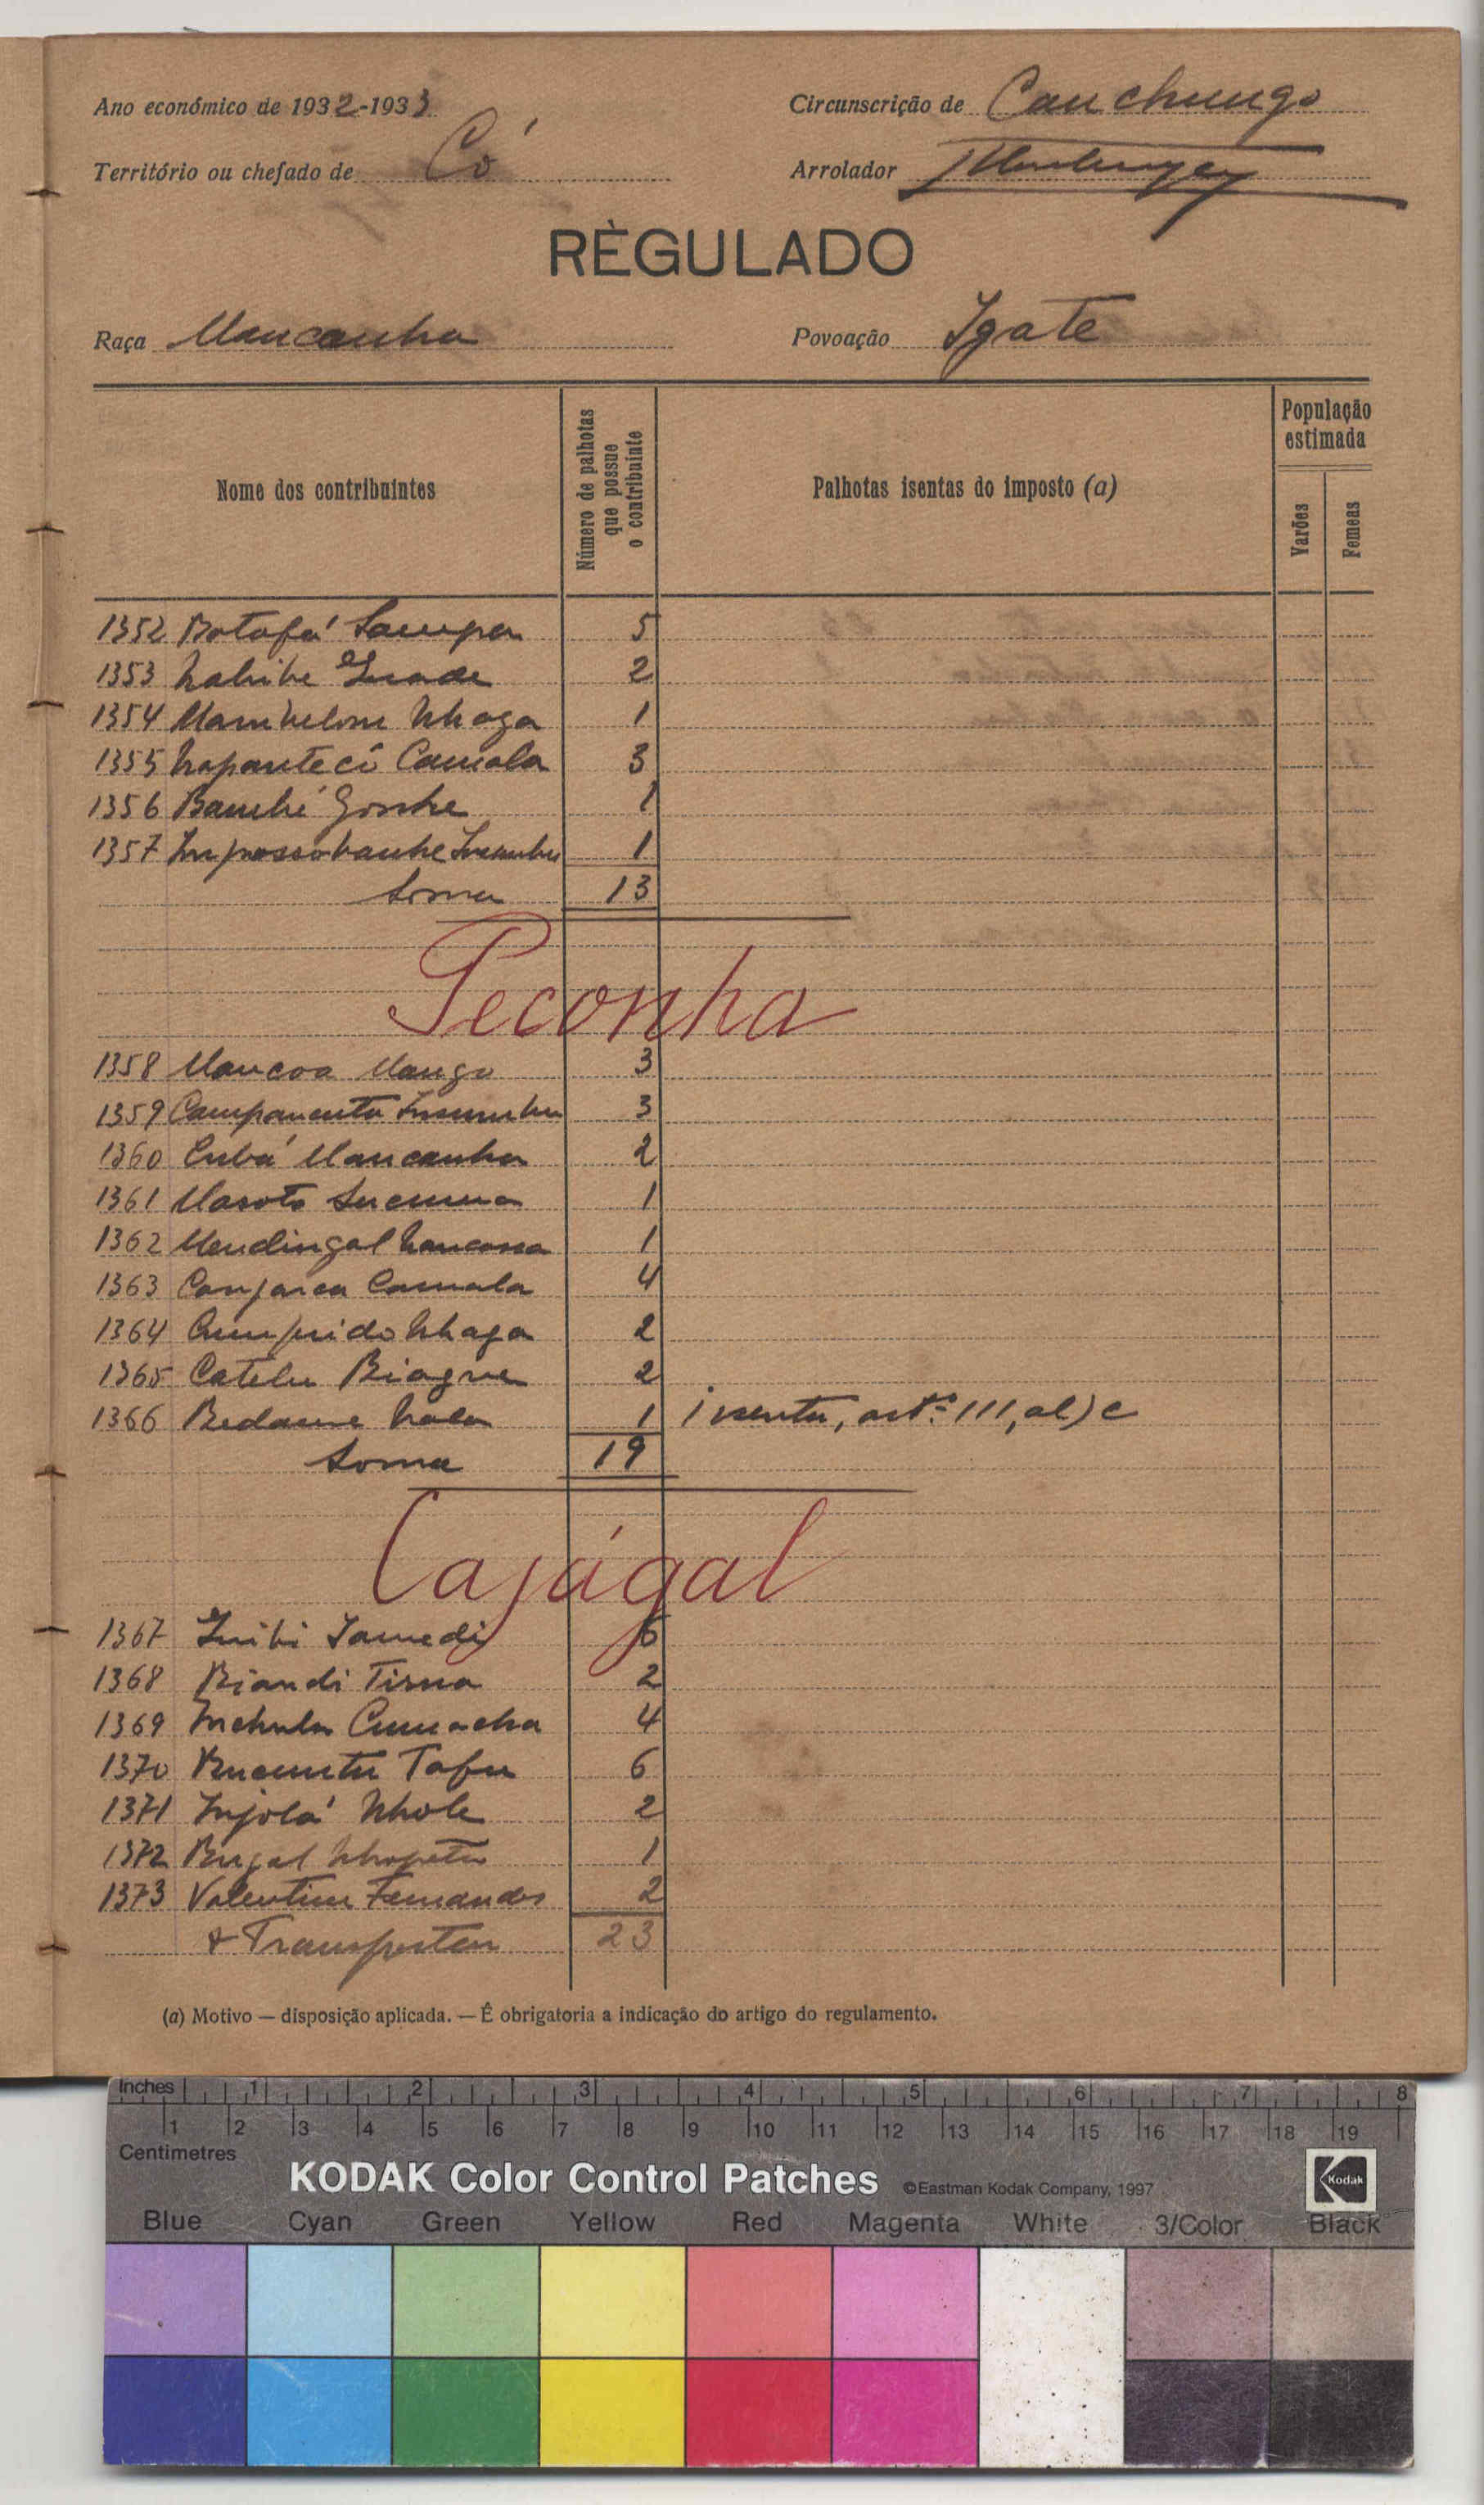 Ano económico de 1932-1933
Circunscrição de Canchungo
Território ou chefado de Có
Arrolador
RÈGULADO
Raça Mancanha
Povoação Igate
Nome dos contribuintes
Número de palhotas que possue o contribuinte
Palhotas isentas do imposto (a)
População estimada
Varões
Femeas
1352 Botafá Sampa 5
1353 2
1354 Nhaga 1
1355 Camala 3
1356 Bambé Gonhe 1
1357 1
Soma 13
Peconha
1358 Mancoa Mango 3
1359 3
1360 Cubá Mancanha 2
1361 Masoto 1
1362 Mendingal 1
1363 Canjarca Camala 4
1364 Cumprido Nhaga 2
1365 Catelu Biagne 2
1366 1 isenta, artº 111, al) c
Soma 19
Cajágal
1367 6
1368 Biandi Tirna 2
1369 4
1370 Tafu 6
1371 Injolá Nhole 2
1372 1
1373 Valentim Fernandes 2
A Transportar 23
(a) Motivo — disposição aplicada. — É obrigatoria a indicação do artigo do regulamento.
Inches 1 2 3 4 5 6 7 8
1 2 3 4 5 6 7 8 9 10 11 12 13 14 15 16 17 18 19
Centimetres
KODAK Color Control Patches ©Eastman Kodak Company, 1997 Kodak
Blue Cyan Green Yellow Red Magenta White 3/Color Black